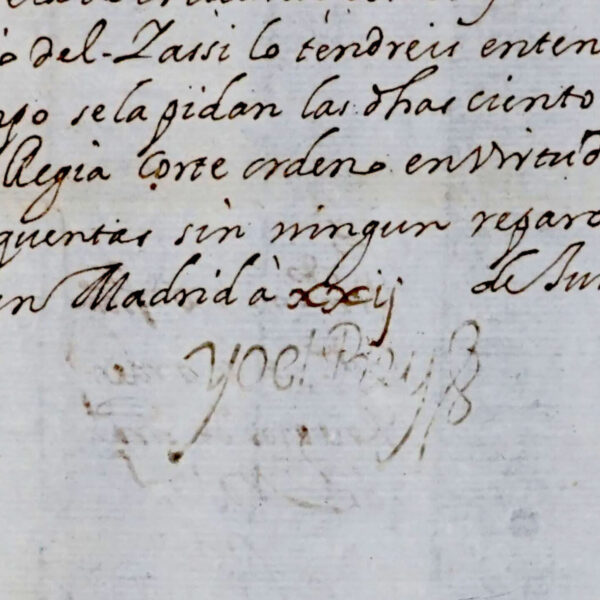 o del-Zassi lo tendreis enten
npo se la pidan las dhas ciento
Regia Corte ordeno en virtud
quentas sin ningun reparo
en Madrid à xxij de Jun
Yo el Rey